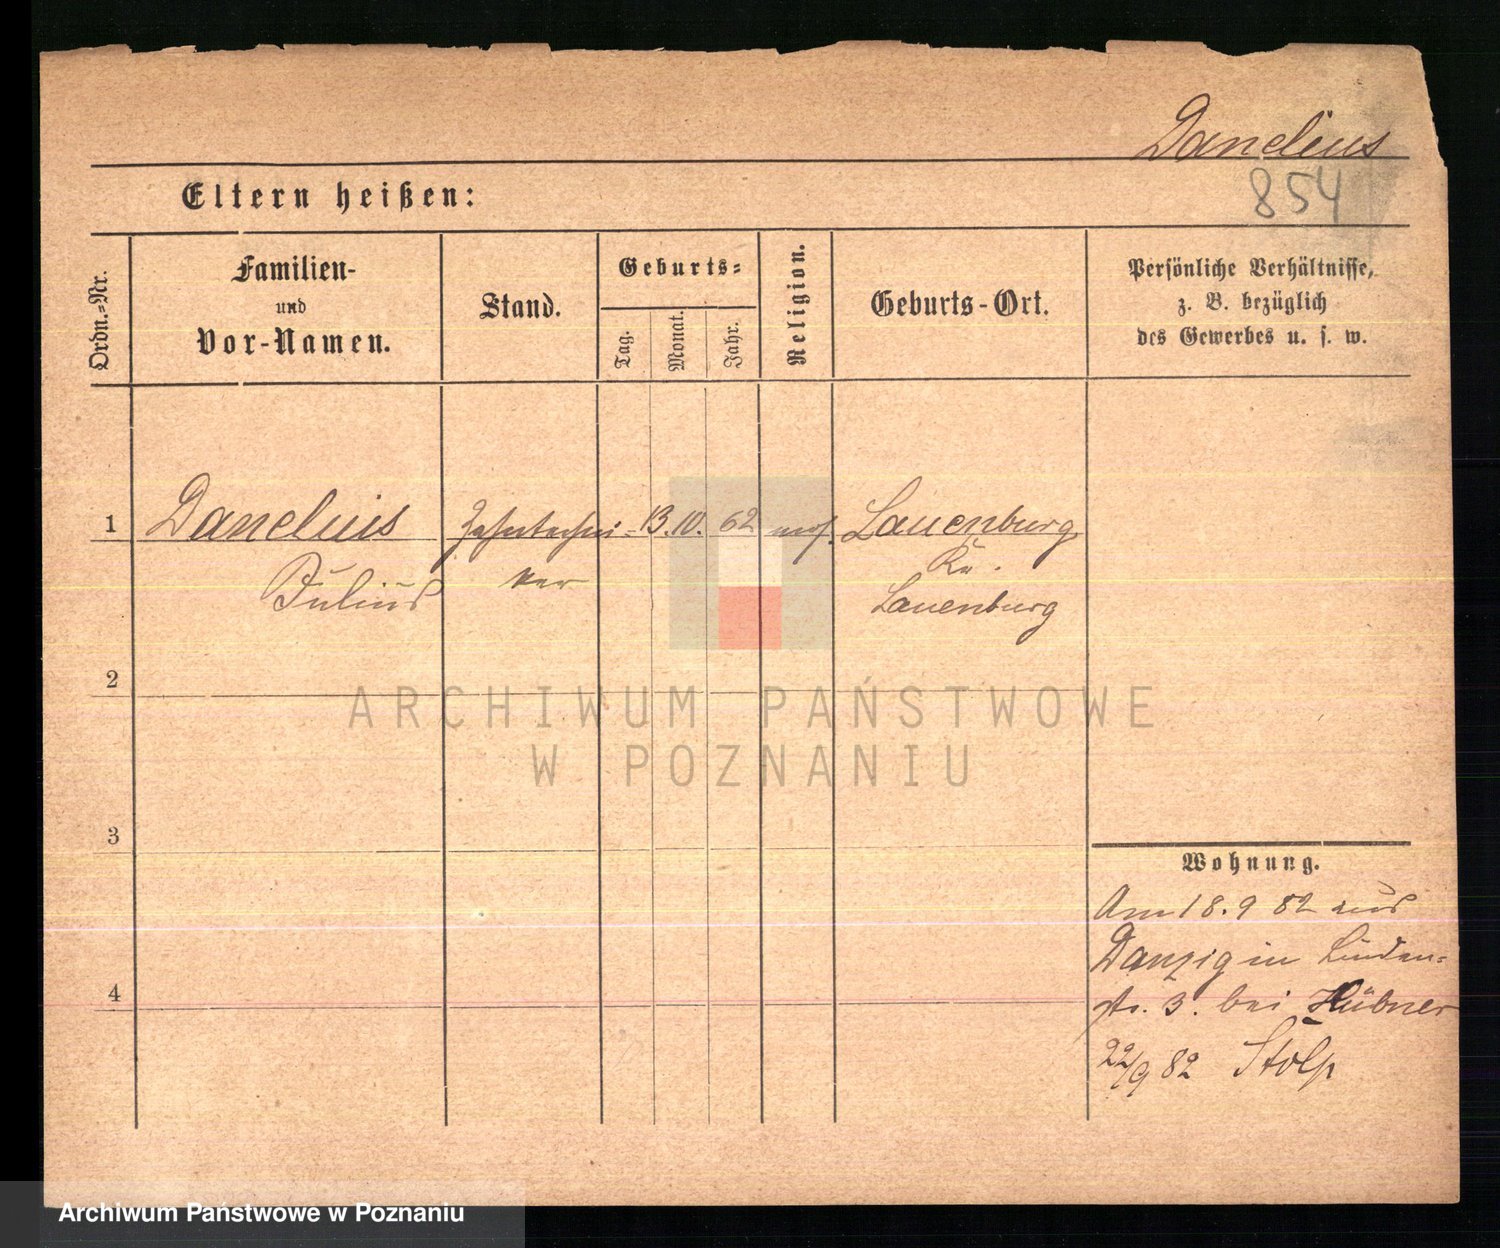 Danelius
854
Eltern heißen:
Ordn.-Nr.
Familien-
und
Vor-Namen.
Stand.
Geburts-
Tag.
Monat.
Jahr.
Religion.
Geburts-Ort.
Persönliche Verhältnisse,
z. B. bezüglich
des Gewerbes u. s. w.
1
Danelius
Julius
Zahntechni-
ker
13.
10.
62
mos.
Lauenburg
Kr.
Lauenburg
2
ARCHIWUM PAŃSTWOWE
W POZNANIU
3
4
Wohnung.
Am 18. 9 82 aus
Danzig in Linden-
str. 3. bei Hübner
22/9 82 Stolp
Archiwum Państwowe w Poznaniu